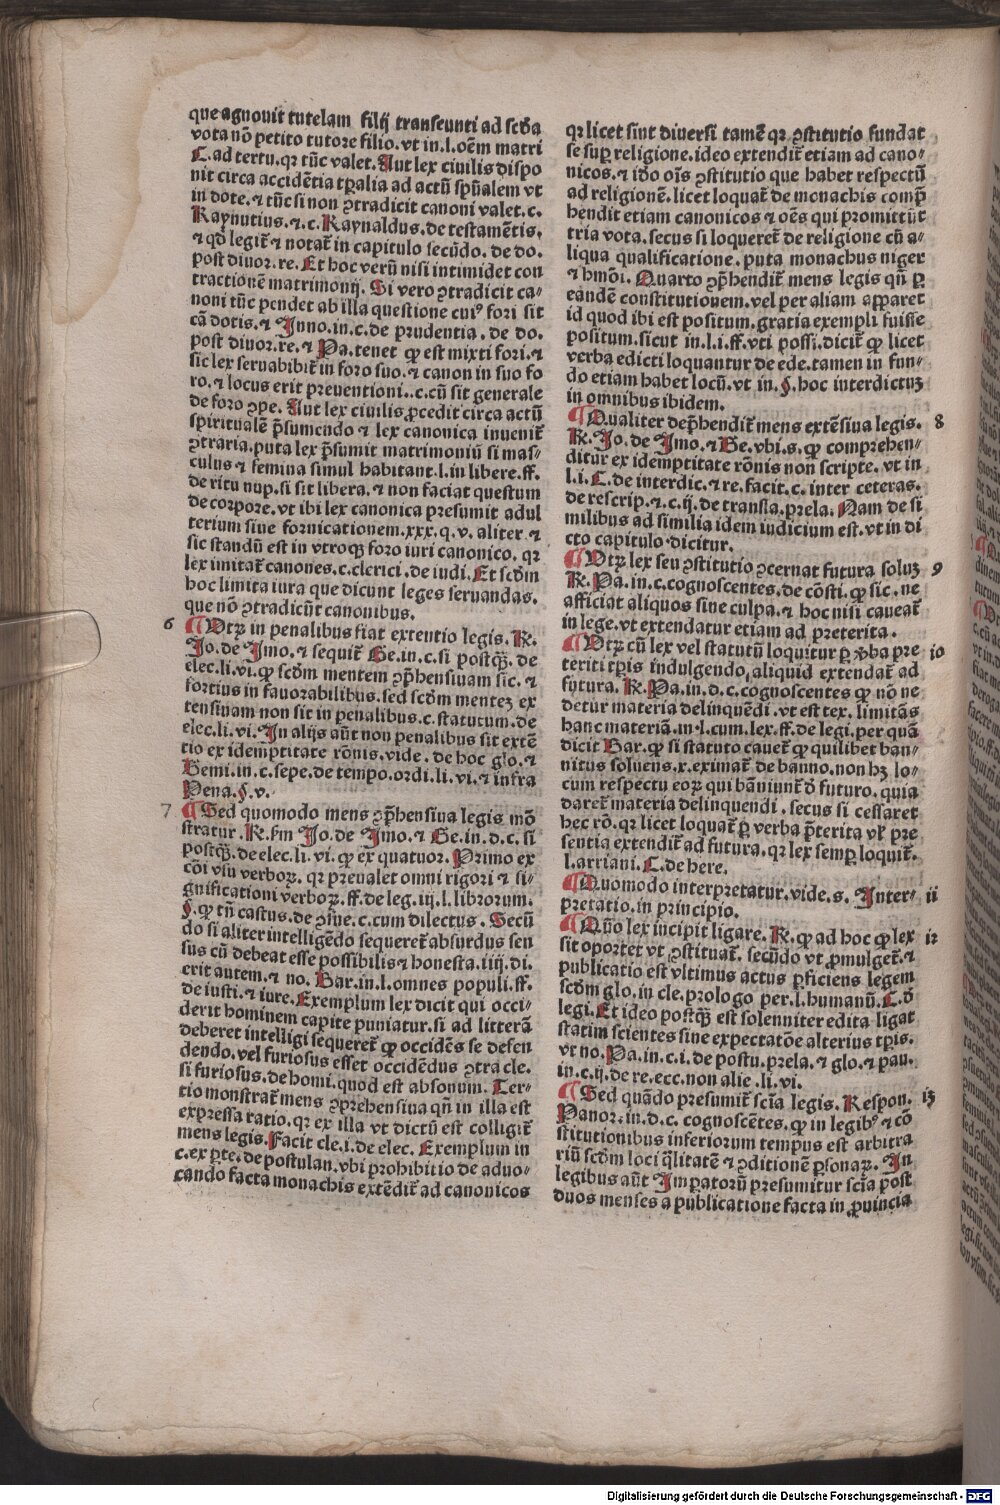 que agnouit tutelam filij transeunti ad scd̄a
vota nō petito tutore filio. vt in. l. oēm matri
C. ad tertu. qꝛ tūc valet. Aut lex ciuilis dispo
nit circa accidētia tꝑalia ad actū spūalem vt
in dote. ⁊ tūc si non ꝯtradicit canoni valet. c.
Raynutius. ⁊. c. Raynaldus. de testamētis.
⁊ qđ legit̄ ⁊ notat̄ in capitulo secūdo. de do.
post diuor. re. Et hoc verū nisi intimidet con
tractionē matrimonij. Si vero ꝯtradicit ca-
noni tūc pendet ab illa questione cuiꝰ fori sit
cā dotis. ⁊ Inno. in. c. de prudentia. de do.
post diuor. re. ⁊ Pa. tenet ꝙ est mixti fori. ⁊
sic lex seruabibit̄ in foro suo. ⁊ canon in suo fo
ro. ⁊ locus erit preuentioni.. c. cū sit generale
de foro ꝯpe. Aut lex ciuilis ꝓcedit circa actū
spiritualē p̄sumendo ⁊ lex canonica inuenit̄
ꝯtraria. puta lex p̄sumit matrimoniū si mas-
culus ⁊ femina simul habitant. l. in libere. ff.
de ritu nup. si sit libera. ⁊ non faciat questum
de corpore. vt ibi lex canonica presumit adul
terium siue fornicationem. xxx. q. v. aliter ⁊
sic standū est in vtroqꝫ foro iuri canonico. qꝛ
lex imitat̄ canones. c. clerici. de iudi. Et scd̄m
hoc limita iura que dicunt leges seruandas.
que nō ꝯtradicūt canonibus.
6 ¶ Utꝝ in penalibus fiat extentio legis. R̄.
Jo. de Imo. ⁊ sequit̄ Ge. in. c. si postqꝫ. de
elec. li. vi. ꝙ scd̄m mentem ꝯp̄hensiuam sic. ⁊
fortius in fauorabilibus. sed scd̄m mentez ex
tensiuam non sit in penalibus. c. statutum. de
elec. li. vi. In alijs aūt non penalibus sit extē
tio ex idemptitate rōnis. vide. de hoc glo. ⁊
Gemi. in. c. sepe. de tempo. ordi. li. vi. ⁊ infra
Pena. §. v.
7 ¶ Sed quomodo mens ꝯp̄hensiua legis mō
stratur. R̄. fm Jo. de Imo. ⁊ Ge. in. d. c. si
postqꝫ. de elec. li. vi. ꝙ ex quatuor. Primo ex
cōi vsu verboꝝ. qꝛ preualet omni rigori ⁊ si-
gnificationi verboꝝ. ff. de leg. iij. l. librorum.
§. ꝙ tn̄ castus. de ꝯsue. c. cum dilectus. Secū
do si aliter intelligēdo sequeret̄ absurdus sen
sus cū debeat esse possibilis ⁊ honesta. iiij. di.
erit autem. ⁊ no. Bar. in. l. omnes populi. ff.
de iusti. ⁊ iure. Exemplum lex dicit qui occi-
derit hominem capite puniatur. si ad litterā
deberet intelligi sequeret̄ ꝙ occidēs se defen
dendo. vel furiosus esset occidēdus ꝯtra cle.
si furiosus. de homi. quod est absonum. Ter-
tio monstrat̄ mens ꝯprehensiua qn̄ in illa est
expressa ratio. qꝛ ex illa vt dictū est colligit̄
mens legis. Facit cle. i. de elec. Exemplum in
c. ex ꝑte. de postulan. vbi prohibitio de aduo-
cando facta monachis extēdit̄ ad canonicos
qꝛ licet sint diuersi tamē qꝛ ꝯstitutio fundat
se suꝑ religione. ideo extendit̄ etiam ad cano-
nicos. ⁊ iđo oīs ꝯstitutio que habet respectū
ad religionē. licet loquat̄ de monachis comp̄
hendit etiam canonicos ⁊ oēs qui promittūt
tria vota. secus si loqueret̄ de religione cū a-
liqua qualificatione. puta monachus niger
⁊ hmōi. Quarto ꝯp̄hendit̄ mens legis qn̄ ꝑ
eandē constitutionem. vel per aliam apparet
id quod ibi est positum. gratia exempli fuisse
positum. sicut in. l. i. ff. vti possi. dicit̄ ꝙ licet
verba edicti loquantur de ede. tamen in fun-
do etiam habet locū. vt in. §. hoc interdictuz
in omnibus ibidem.
¶ Qualiter dep̄hendit̄ mens extēsiua legis. 8
R̄. Jo. de Imo. ⁊ Ge. vbi. s. ꝙ comprehen-
ditur ex idemptitate rōnis non scripte. vt in
l. i. C. de interdic. ⁊ re. facit. c. inter ceteras.
de rescrip. ⁊ c. ij. de transla. prela. Nam de si
milibus ad similia idem iudicium est. vt in di
cto capitulo dicitur.
¶ Utꝝ lex seu ꝯstitutio ꝯcernat futura soluz 9
R̄. Pa. in. c. cognoscentes. de cōsti. ꝙ sic. ne
afficiat aliquos sine culpa. ⁊ hoc nisi caueat̄
in lege. vt extendatur etiam ad preterita.
¶ Utꝝ cū lex vel statutū loquitur ꝑ v̄ba pre 10
teriti tꝑis indulgendo, aliquid extendat̄ ad
futura. R̄. Pa. in. d. c. cognoscentes ꝙ nō ne
detur materia delinquēdi. vt est tex. limitās
hanc materiā. in. l. cum. lex. ff. de legi. per quā
dicit Bar. ꝙ si statuto cauet̄ ꝙ quilibet ban-
nitus soluens. x. eximat̄ de banno. non hꝫ lo-
cum respectu eoꝝ qui bāniunt̄ đ futuro. quia
daret̄ materia delinquendi. secus si cessaret
hec rō. qꝛ licet loquat̄ ꝑ verba p̄terita vl' pre
sentia extendit̄ ad futura. qꝛ lex semꝑ loquit̄.
l. arriani. C. de here.
¶ Quomodo interpretatur. vide. s. Inter- 11
pretatio. in principio.
¶ Qn̄o lex incipit ligare. R̄. ꝙ ad hoc ꝙ lex 12
sit oportet vt ꝯstituat̄. secūdo vt ꝓmulget̄. ⁊
publicatio est vltimus actus ꝑficiens legem
scd̄m glo. in cle. prologo per. l. humanū. C. đ
legi. Et ideo postqꝫ est solenniter edita ligat
statim scientes sine expectatōe alterius tꝑis.
vt no. Pa. in. c. i. de postu. prela. ⁊ glo. ⁊ pau.
in. c. ij. de re. ecc. non alie. li. vi.
¶ Sed quādo presumit̄ scīa legis. Respon. 13
Panor. in. d. c. cognoscētes. ꝙ in legibꝰ ⁊ cō
stitutionibus inferiorum tempus est arbitra
riū scd̄m loci q̄litatē ⁊ ꝯditionē ꝑsonaꝝ. In
legibus aūt Imꝑatorū presumitur scīa post
duos menses a publicatione facta in ꝓuincia
Digitalisierung gefördert durch die Deutsche Forschungsgemeinschaft - DFG